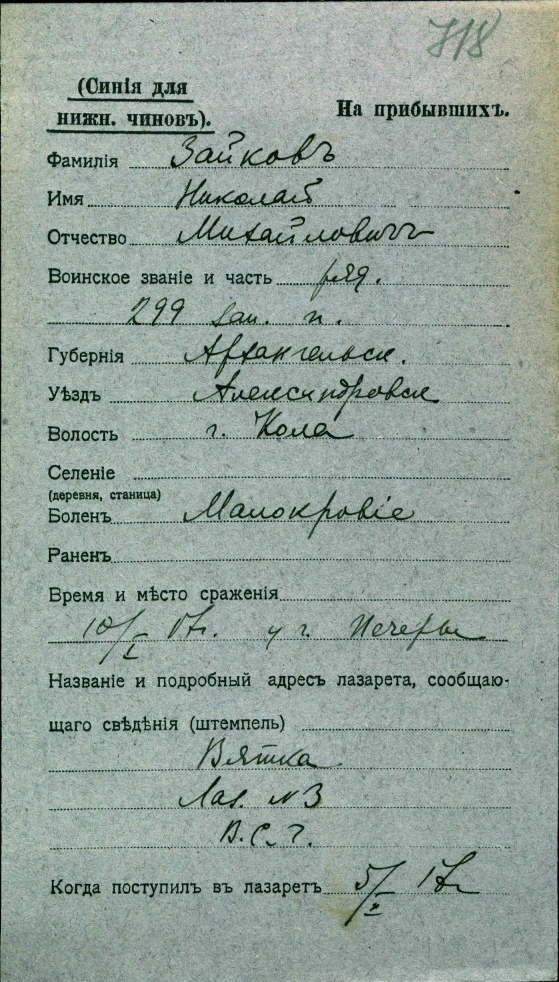 718
(Синія для
нижн. чиновъ).
На прибывшихъ.
Фамилія Зайковъ
Имя Николай
Отчество Михайловичъ
Воинское званіе и часть ряд.
299 зап. п.
Губернія Архангельск.
Уѣздъ Александровск
Волость г. Кола
Селеніе
(деревня, станица)
Боленъ Малокровіе
Раненъ
Время и мѣсто сраженія
10/I 17г. у г. Печеры
Названіе и подробный адресъ лазарета, сообщаю-
щаго свѣдѣнія (штемпель)
Вятка
Лаз. N 3
В.С.Г.
Когда поступилъ въ лазаретъ 5/ 17г